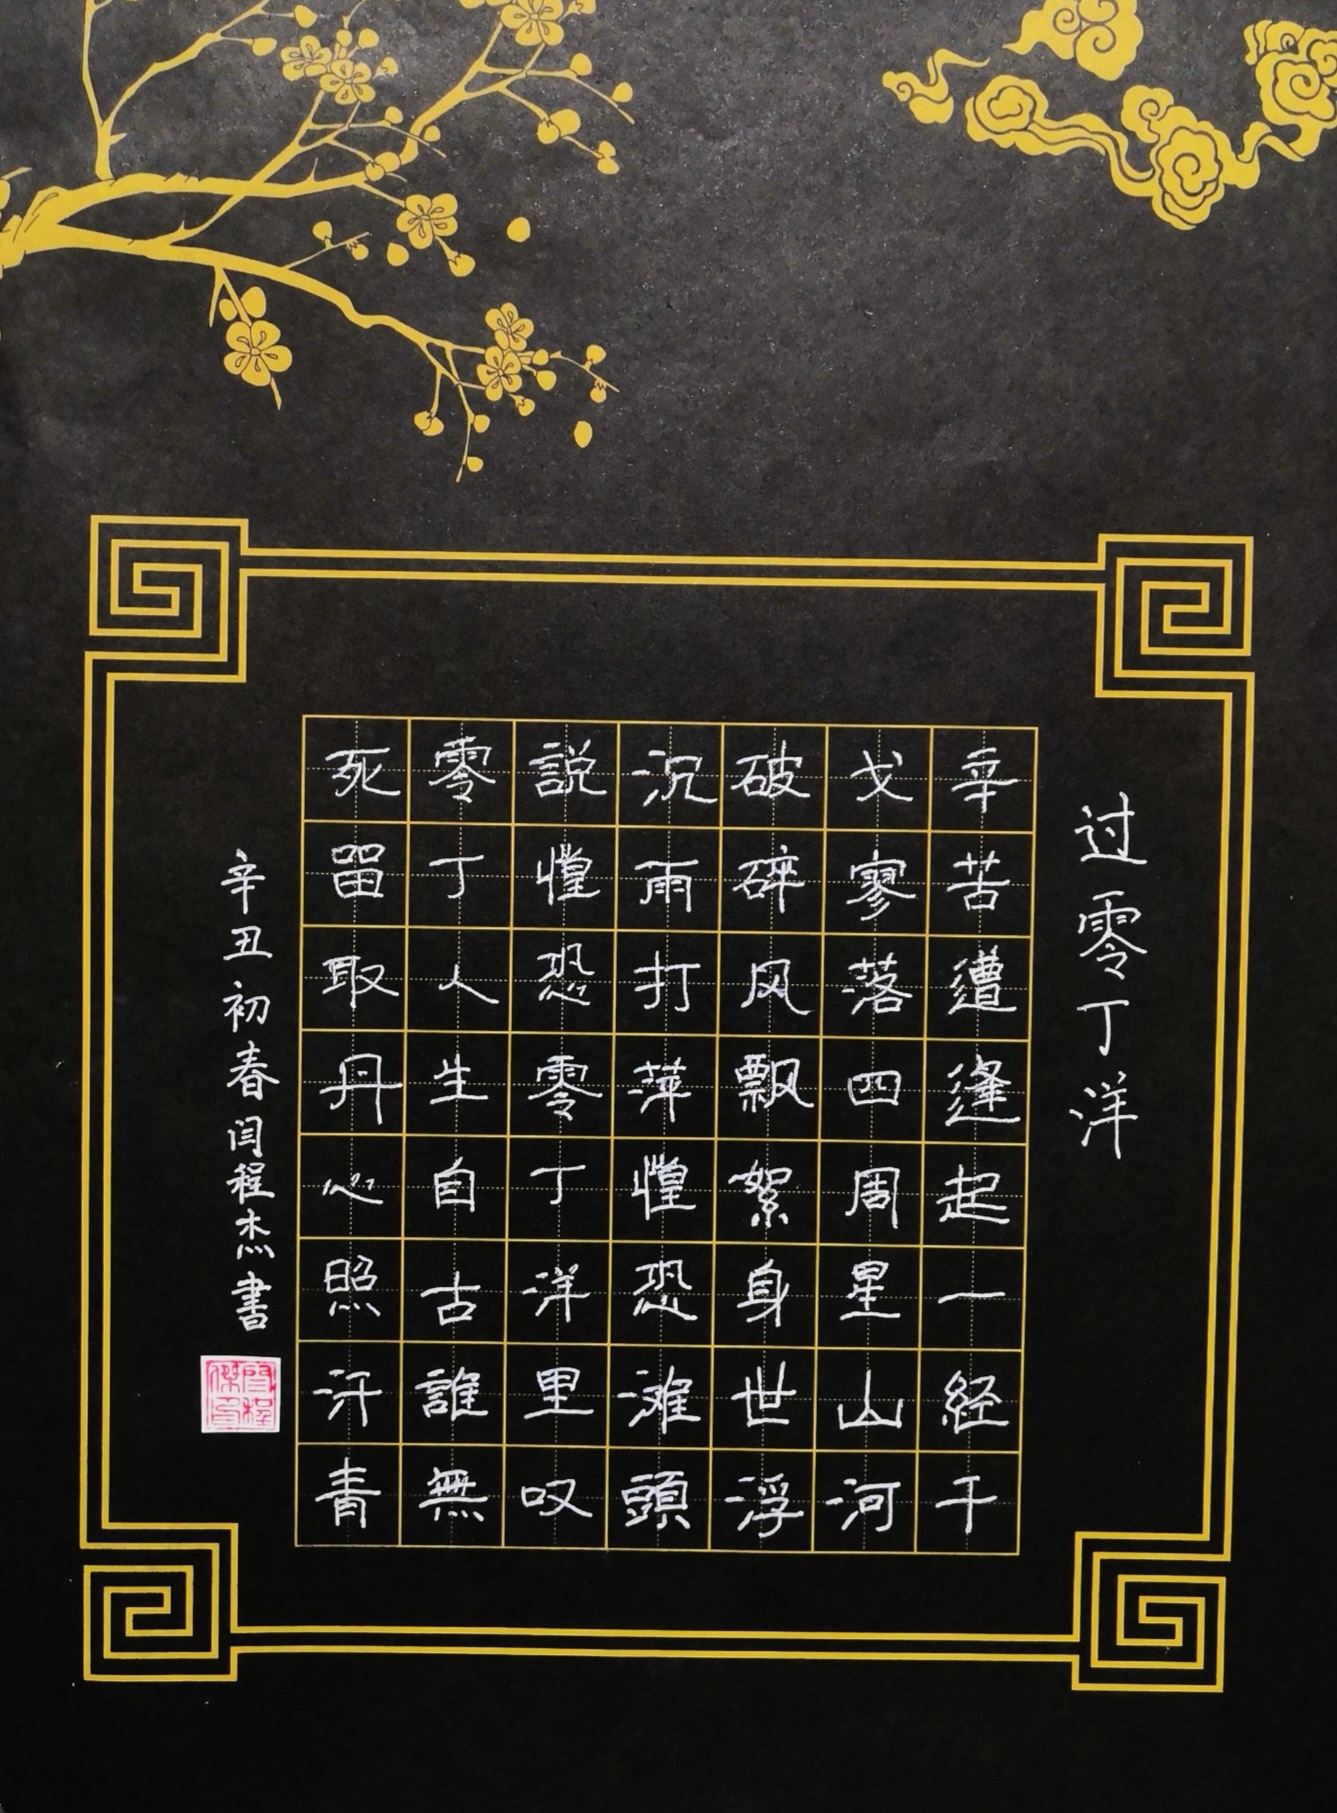 过零丁洋
辛苦遭逢起一经千
戈寥落四周星山河
破碎风飘絮身世浮
沉雨打萍惶恐滩頭
説惶恐零丁洋里叹
零丁人生自古誰無
死留取丹心照汗青
辛丑初春闫程杰書
閆程傑印